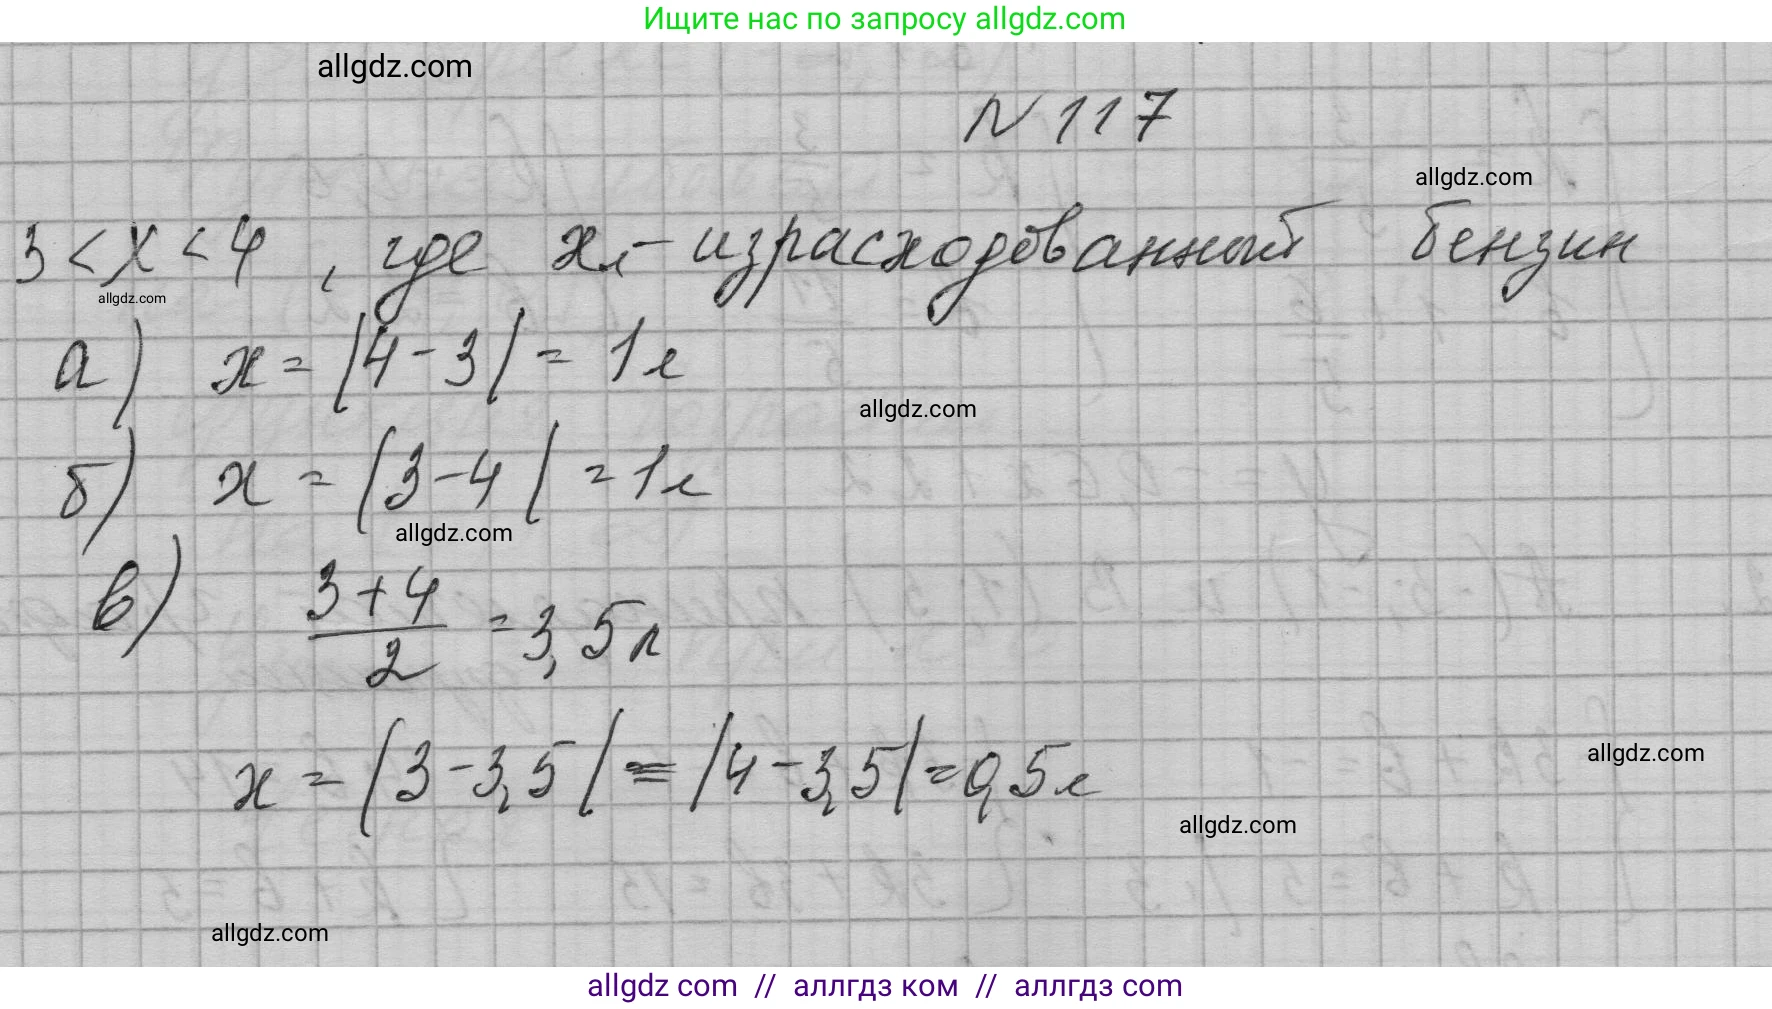 Ищите нас по запросу allgdz.com
allgdz.com
N 117
allgdz.com
3 < x < 4 , где x л - израсходованный бензин
allgdz.com
а) x = |4 - 3| = 1 л
allgdz.com
б) x = |3 - 4| = 1 л
allgdz.com
в) (3 + 4)/2 = 3,5 л
x = |3 - 3,5| = |4 - 3,5| = 0,5 л
allgdz.com
allgdz.com
allgdz.com
allgdz com // аллгдз ком // аллгдз com